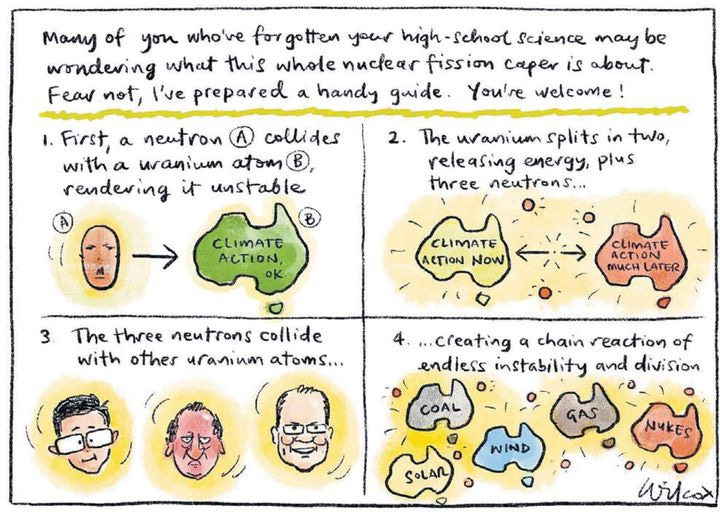 Many of you who've forgotten your high-school science may be
wondering what this whole nuclear fission caper is about.
Fear not, I've prepared a handy guide. You're welcome!
1. First, a neutron Ⓐ collides
with a uranium atom Ⓑ,
rendering it unstable
A
B
CLIMATE
ACTION,
OK.
2. The uranium splits in two,
releasing energy, plus
three neutrons...
CLIMATE
ACTION NOW
CLIMATE
ACTION
MUCH LATER
3 The three neutrons collide
with other uranium atoms...
4. ...creating a chain reaction of
endless instability and division
COAL
GAS
NUKES
WIND
SOLAR
Wilcox